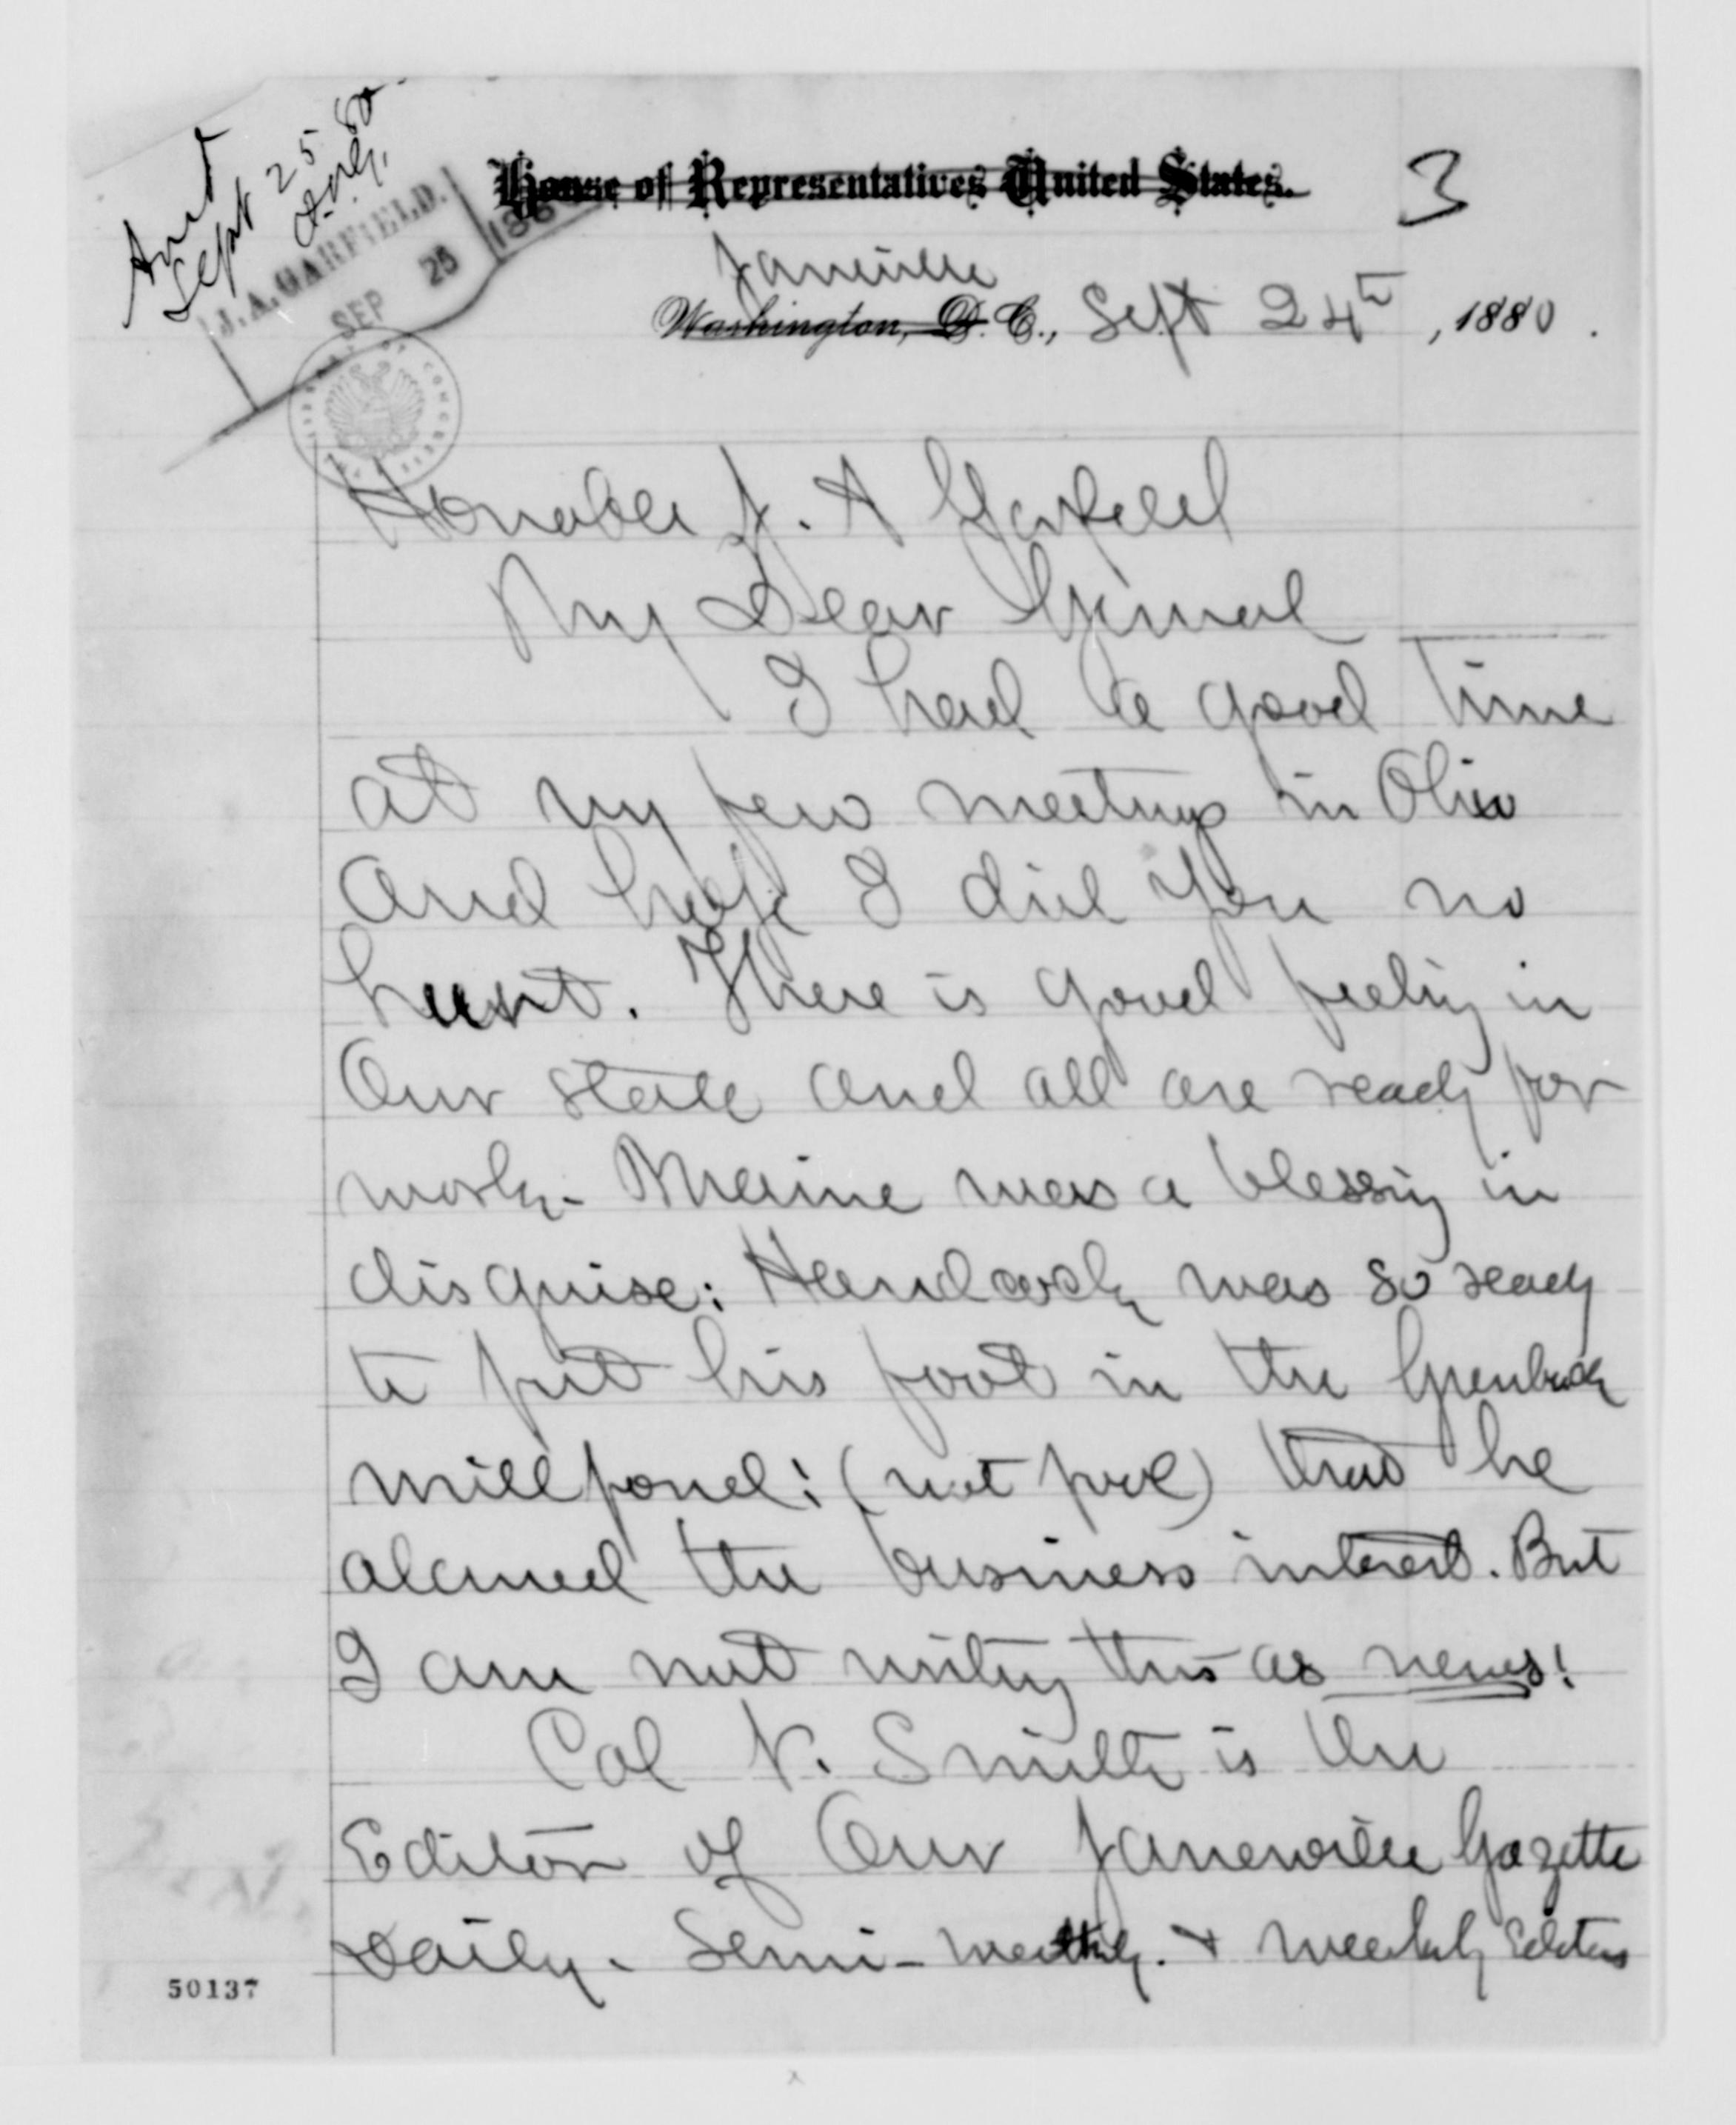 Anst
Sept 25 80
J. A. GARFIELD.
SEP 25 188
House of Representatives United States.
3
Janesville
Washington, D. C., Sept 24th, 1880.
Honorable J. A Garfield
My Dear General
I had a good time
at my few meetings in Ohio
and hope I did you no
hurt. There is good feeling in
Our state and all are ready for
work - Maine was a blessing in
disguise: Handcock was so ready
to put his foot in the Greenback
millpond! (not pool) that he
alarmed the business interest. But
I am not writing this as news!
Col N. Smith is the
Editor of Our Janesville Gazette
Daily. Semi-weekly. + weekly Editions
50137